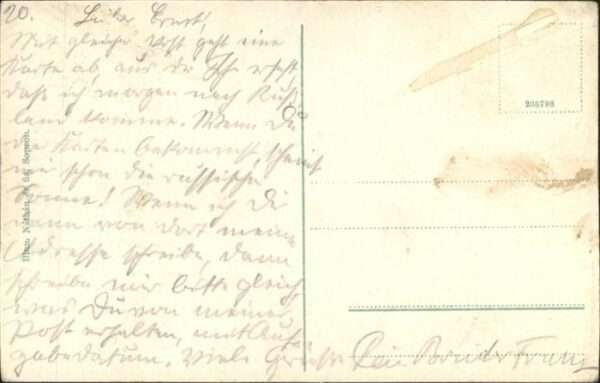 20. Lieber Ernst!
Mit gleicher Post geht eine
Karte ab, aus der Ihr erseht,
daß ich morgen nach Ruß-
land komme. Wenn Du
die Karten bekommst, scheint
mir schon die russische
Sonne! Wenn ich Dir
dann von dort meine
Adresse schreibe, dann
schreibe mir bitte gleich,
was Du von meiner
Post erhalten, mit Auf-
gabedatum. Viele Grüße Dein Bruder Franz
205798